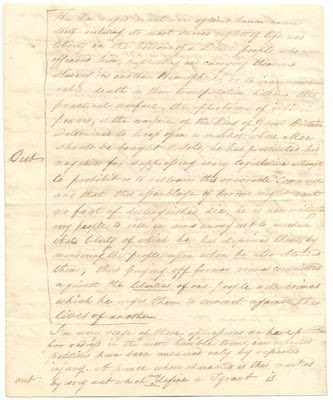 He has waged cruel war against human nature
itself violating its most sacred rights of life and
liberty in the persons of a distant people who
offended him, captivating and carrying them into
slavery in another Hemisphere, or to incur miser
able death in their transportation hither. this
practical warfare, the opprobrium of infidel
powers, is the warfare of the King of Great Britain
Determined to keep open a market where Men
Out
should be bought & sold, he has prostituted his
negative for suppressing every legislative attempt
to prohibit or to restrain this execrable Commerce
and that this assemblage of horrors might want
no fact of distinguished die, he is now exciting
very people to rise in arms among us & to purchase
that liberty of which he has deprived them, by
murdering the people upon whom he also obtruded
them; thus paying off former crimes committed
against the liberties of one people with crimes
which he urges them to commit against the
lives of another
In every stage of these oppressions we have
for redress in the most humble terms, our repeated
petitions have been answered only by repeated
injury. A prince whose character is thus marked
out
by every act which may define a Tyrant is